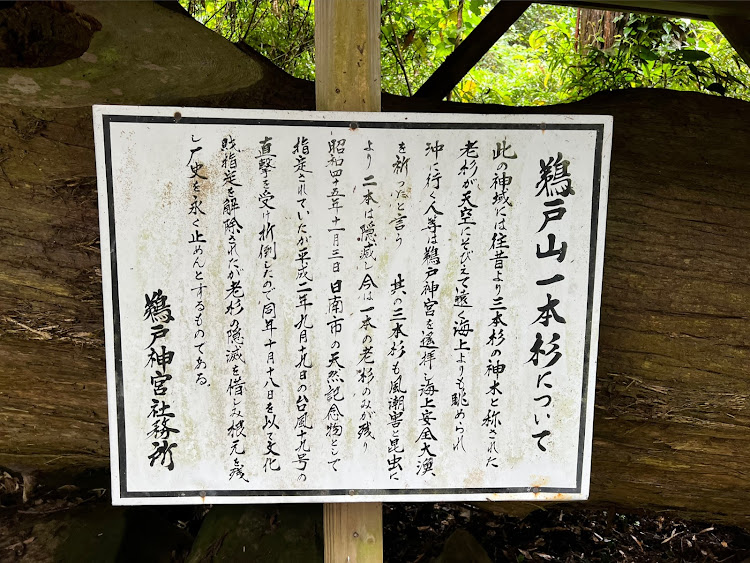 鵜戸山一本杉について
此の神域には往昔より三本杉の神木と称された
老杉が天空にそびえて遠く海上よりも眺められ
沖に行く人等は鵜戸神宮を遥拝し海上安全大漁
を祈ったと言う 其の三本杉も風潮害と昆虫に
より二本は隠滅し今は一本の老杉のみが残り
昭和四十五年十一月三日日南市の天然記念物として
指定されていたが平成二年九月十九日の台風十九号の
直撃を受け折倒したので同年十月十八日を以て文化
財指定を解除されたが老杉の隠滅を惜しみ根元を残
し歴史を永く止めんとするものである。
鵜戸神宮社務所